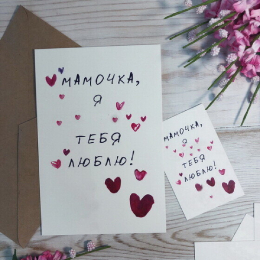 МАМОЧКА,
Я
ТЕБЯ
ЛЮБЛЮ!
МАМОЧКА,
Я
ТЕБЯ
ЛЮБЛЮ!